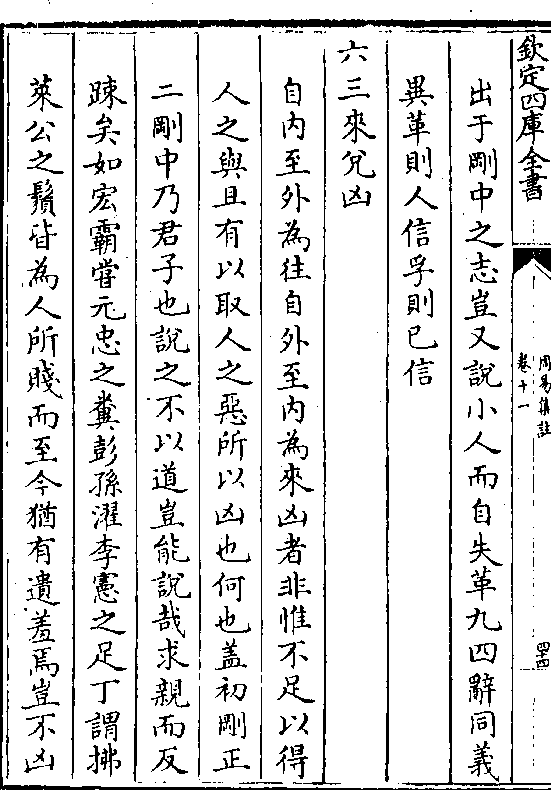 欽定四庫全書
周易集註
卷十一
四十四
出于剛中之志豈又說小人而自失革九四辭同義
異革則人信孚則已信
六三來兌凶
自内至外為往自外至内為來凶者非惟不足以得
人之與且有以取人之惡所以凶也何也盖初剛正
二剛中乃君子也說之不以道豈能說哉求親而反
踈矣如宏霸嘗元忠之糞彭孫濯李憲之足丁謂拂
萊公之鬚皆為人所賤而至今猶有遺羞焉豈不凶